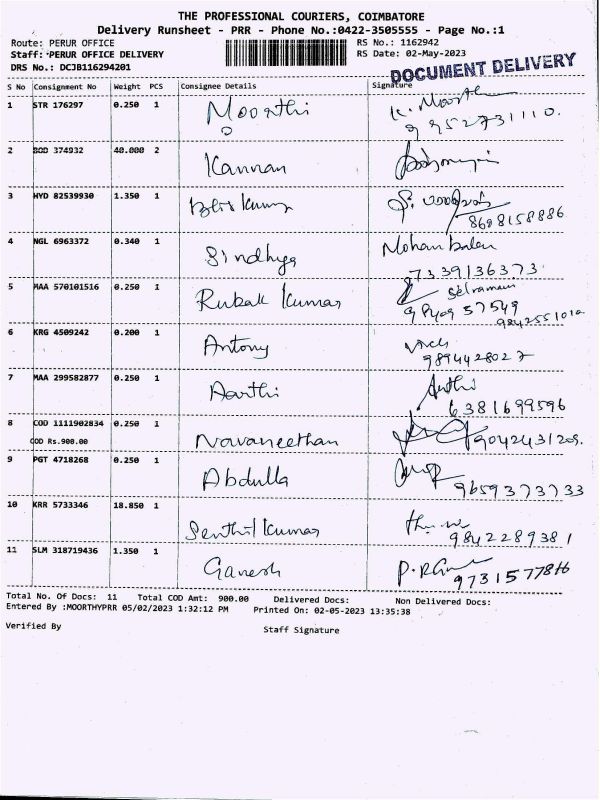 THE PROFESSIONAL COURIERS, COIMBATORE
Delivery Runsheet - PRR - Phone No.:0422-3505555 - Page No.:1
Route: PERUR OFFICE RS No.: 1162942
Staff: PERUR OFFICE DELIVERY RS Date: 02-May-2023
DRS No.: DCJB116294201
DOCUMENT DELIVERY
S No Consignment No Weight PCS Consignee Details Signature
1 STR 176297 0.250 1 Moorthi K. Moorth
9952731110.
2 374932 40.000 2 Kannan
3 HYD 82539930 1.350 1
8698158886
4 NGL 6963372 0.340 1 Sindhya Mohan
7339136373
5 MAA 570101516 0.250 1 Rubak Kumar Selraman
9840957549
6 KRG 4509242 0.200 1 Antony
9894428027
7 MAA 299582877 0.250 1 Aarthi Arthi
6381699596
8 COD 1111902834 0.250 1 Navaneethan 9042431209.
COD Rs.900.00
9 PGT 4718268 0.250 1 Abdulla
9659373733
10 KRR 5733346 18.850 1 Senthil Kumar
9842289381
11 SLM 318719436 1.350 1 Ganesh
Total No. Of Docs: 11 Total COD Amt: 900.00 Delivered Docs: Non Delivered Docs:
Entered By :MOORTHYPRR 05/02/2023 1:32:12 PM Printed On: 02-05-2023 13:35:38
Verified By Staff Signature